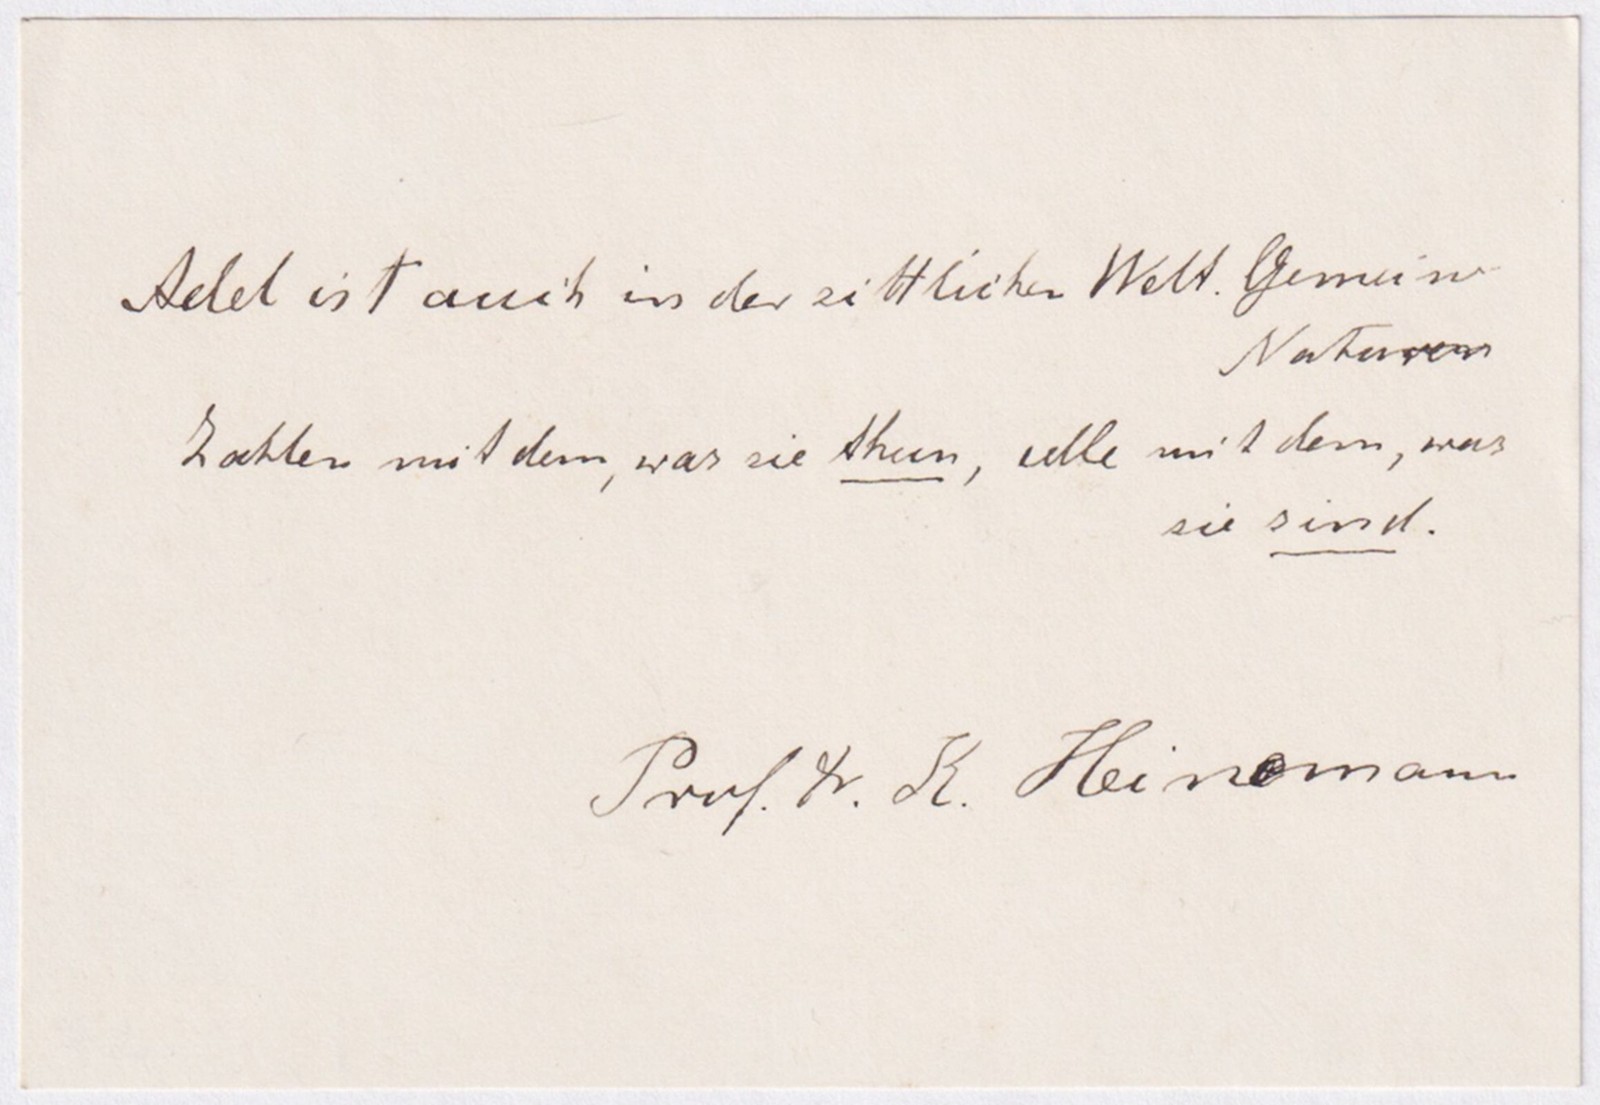 Adel ist auch in der sittlichen Welt. Gemeine
Naturen
Zahlen mit dem, was sie thun, edle mit dem, was
sie sind.
Prof. Dr. K. Heinemann